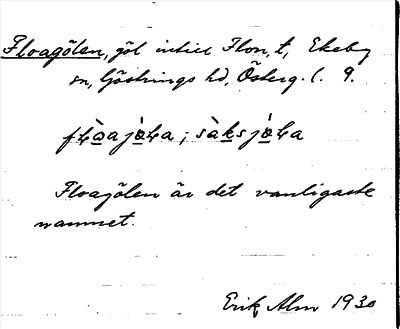 Floagölen, göl intill Flon, t, Ekeby
sn, Göstrings hd, Österg. l. 9.
Floagölen är det vanligaste
namnet.
Erik Alm 1930